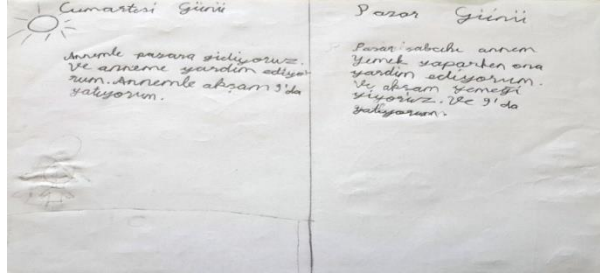 Cumartesi Günü
Annemle pazara gidiyoruz.
Ve anneme yardım ediyo-
rum. Annemle akşam 9'da
yatıyorum.
Pazar Günü
Pazar sabahı annem
yemek yaparken ona
yardım ediyorum.
Ve akşam yemeği
yiyoruz. Ve 9'da
yatıyorum.